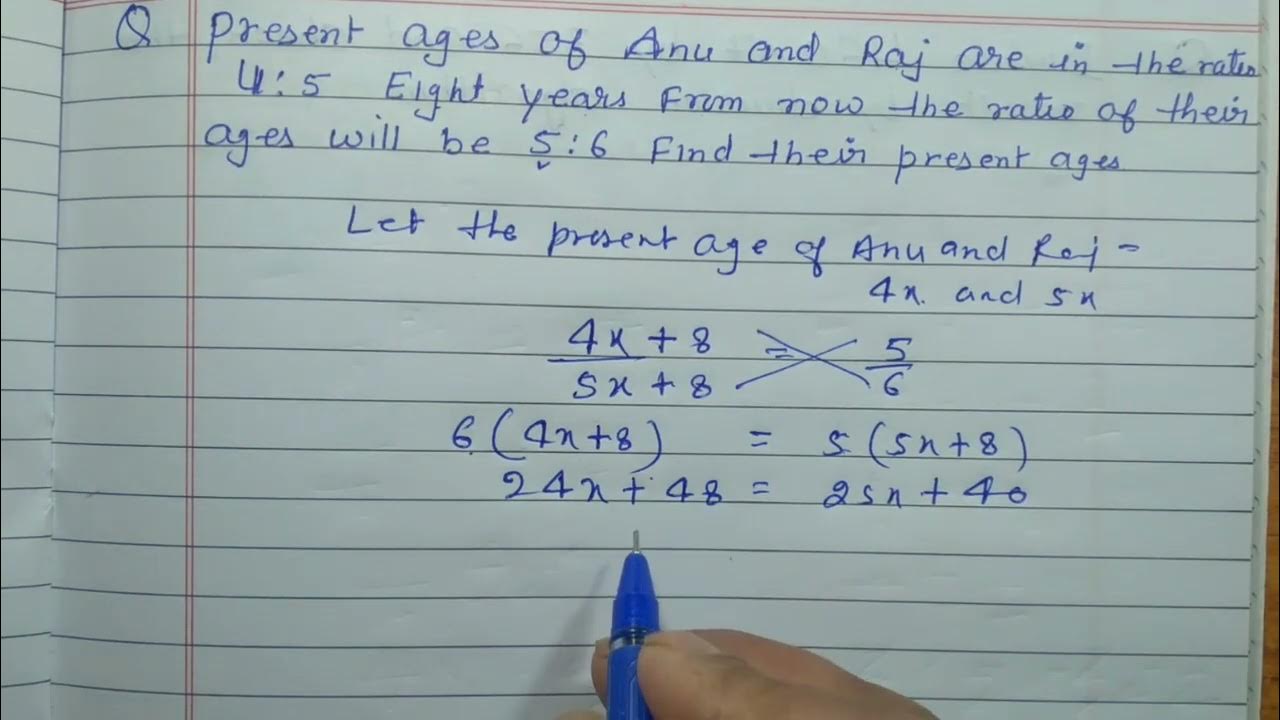 Q Present ages of Anu and Raj are in the ratio
4:5 Eight years From now the ratio of their
ages will be 5:6 Find their present ages
Let the present age of Anu and Raj =
4x. and 5x
4x + 8 = 5
5x + 8 6
6(4x+8) = 5(5x+8)
24x + 48 = 25x + 40